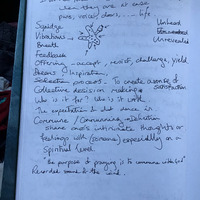 when they are at ease
pure, voices, dance, ... life
Squidge
Unheard
Vibrations
Breath
Unrevealed
Feedback
Offering - accept, resist, challenge, yield
Inspiration,
Selection process - To create a sense of satisfaction
Collective decision making
Who is it for? Who is it with
The expectation is that dance is
Commune / Communing - definition
share one's intimate thoughts or
feelings with (someone) especially on a
spiritual level
"the purpose of praying is to commune with God"
Recorded sound & the wind.